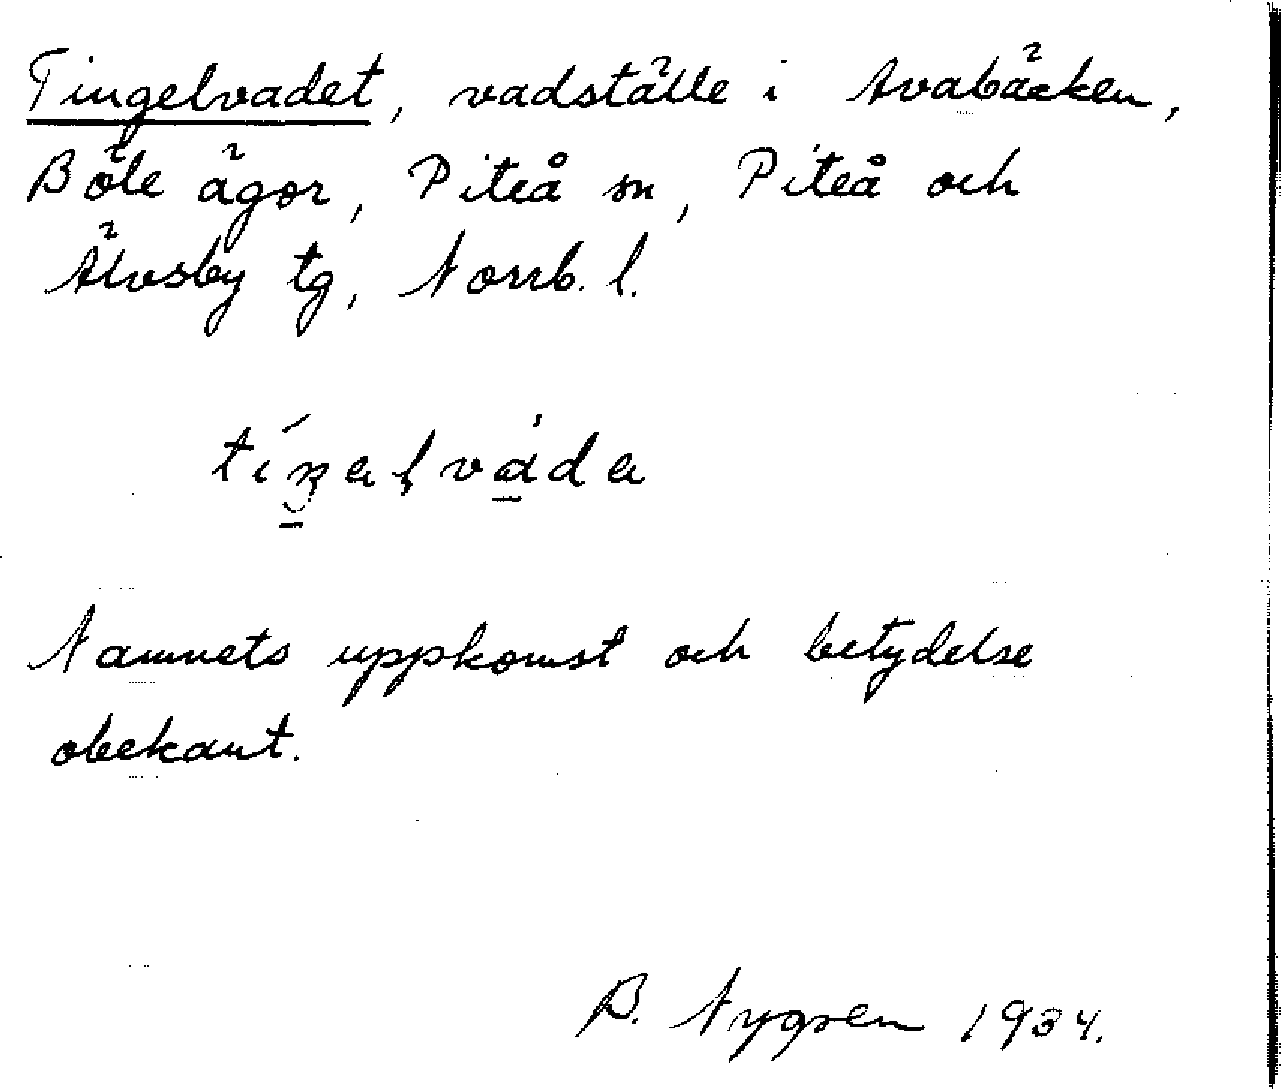 Tingelvadet, vadställe i Avabäcken,
Böle ägor, Piteå sn, Piteå och
Älvsby tg, Norrb. l.
Namnets uppkomst och betydelse
obekant.
B. Nygren 1934.